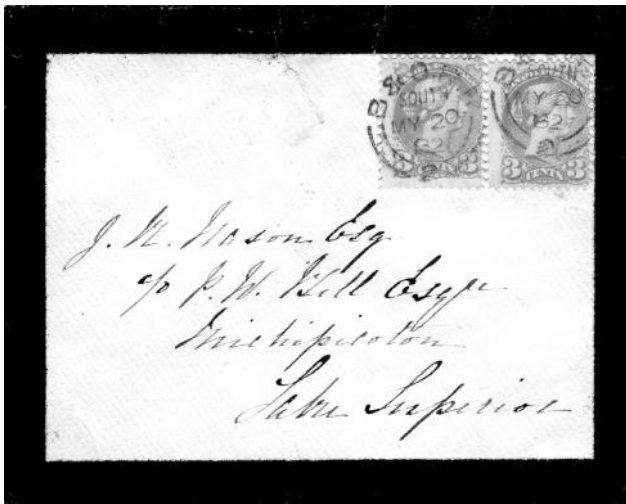 B & O
SOUTH
MY 20
82
SOUTH
MY 20
82
3 CENTS 3
3 CENTS 3
J. N. Nason Esq
c/o P. W. Bell Esqre
Michipicoton
Lake Superior